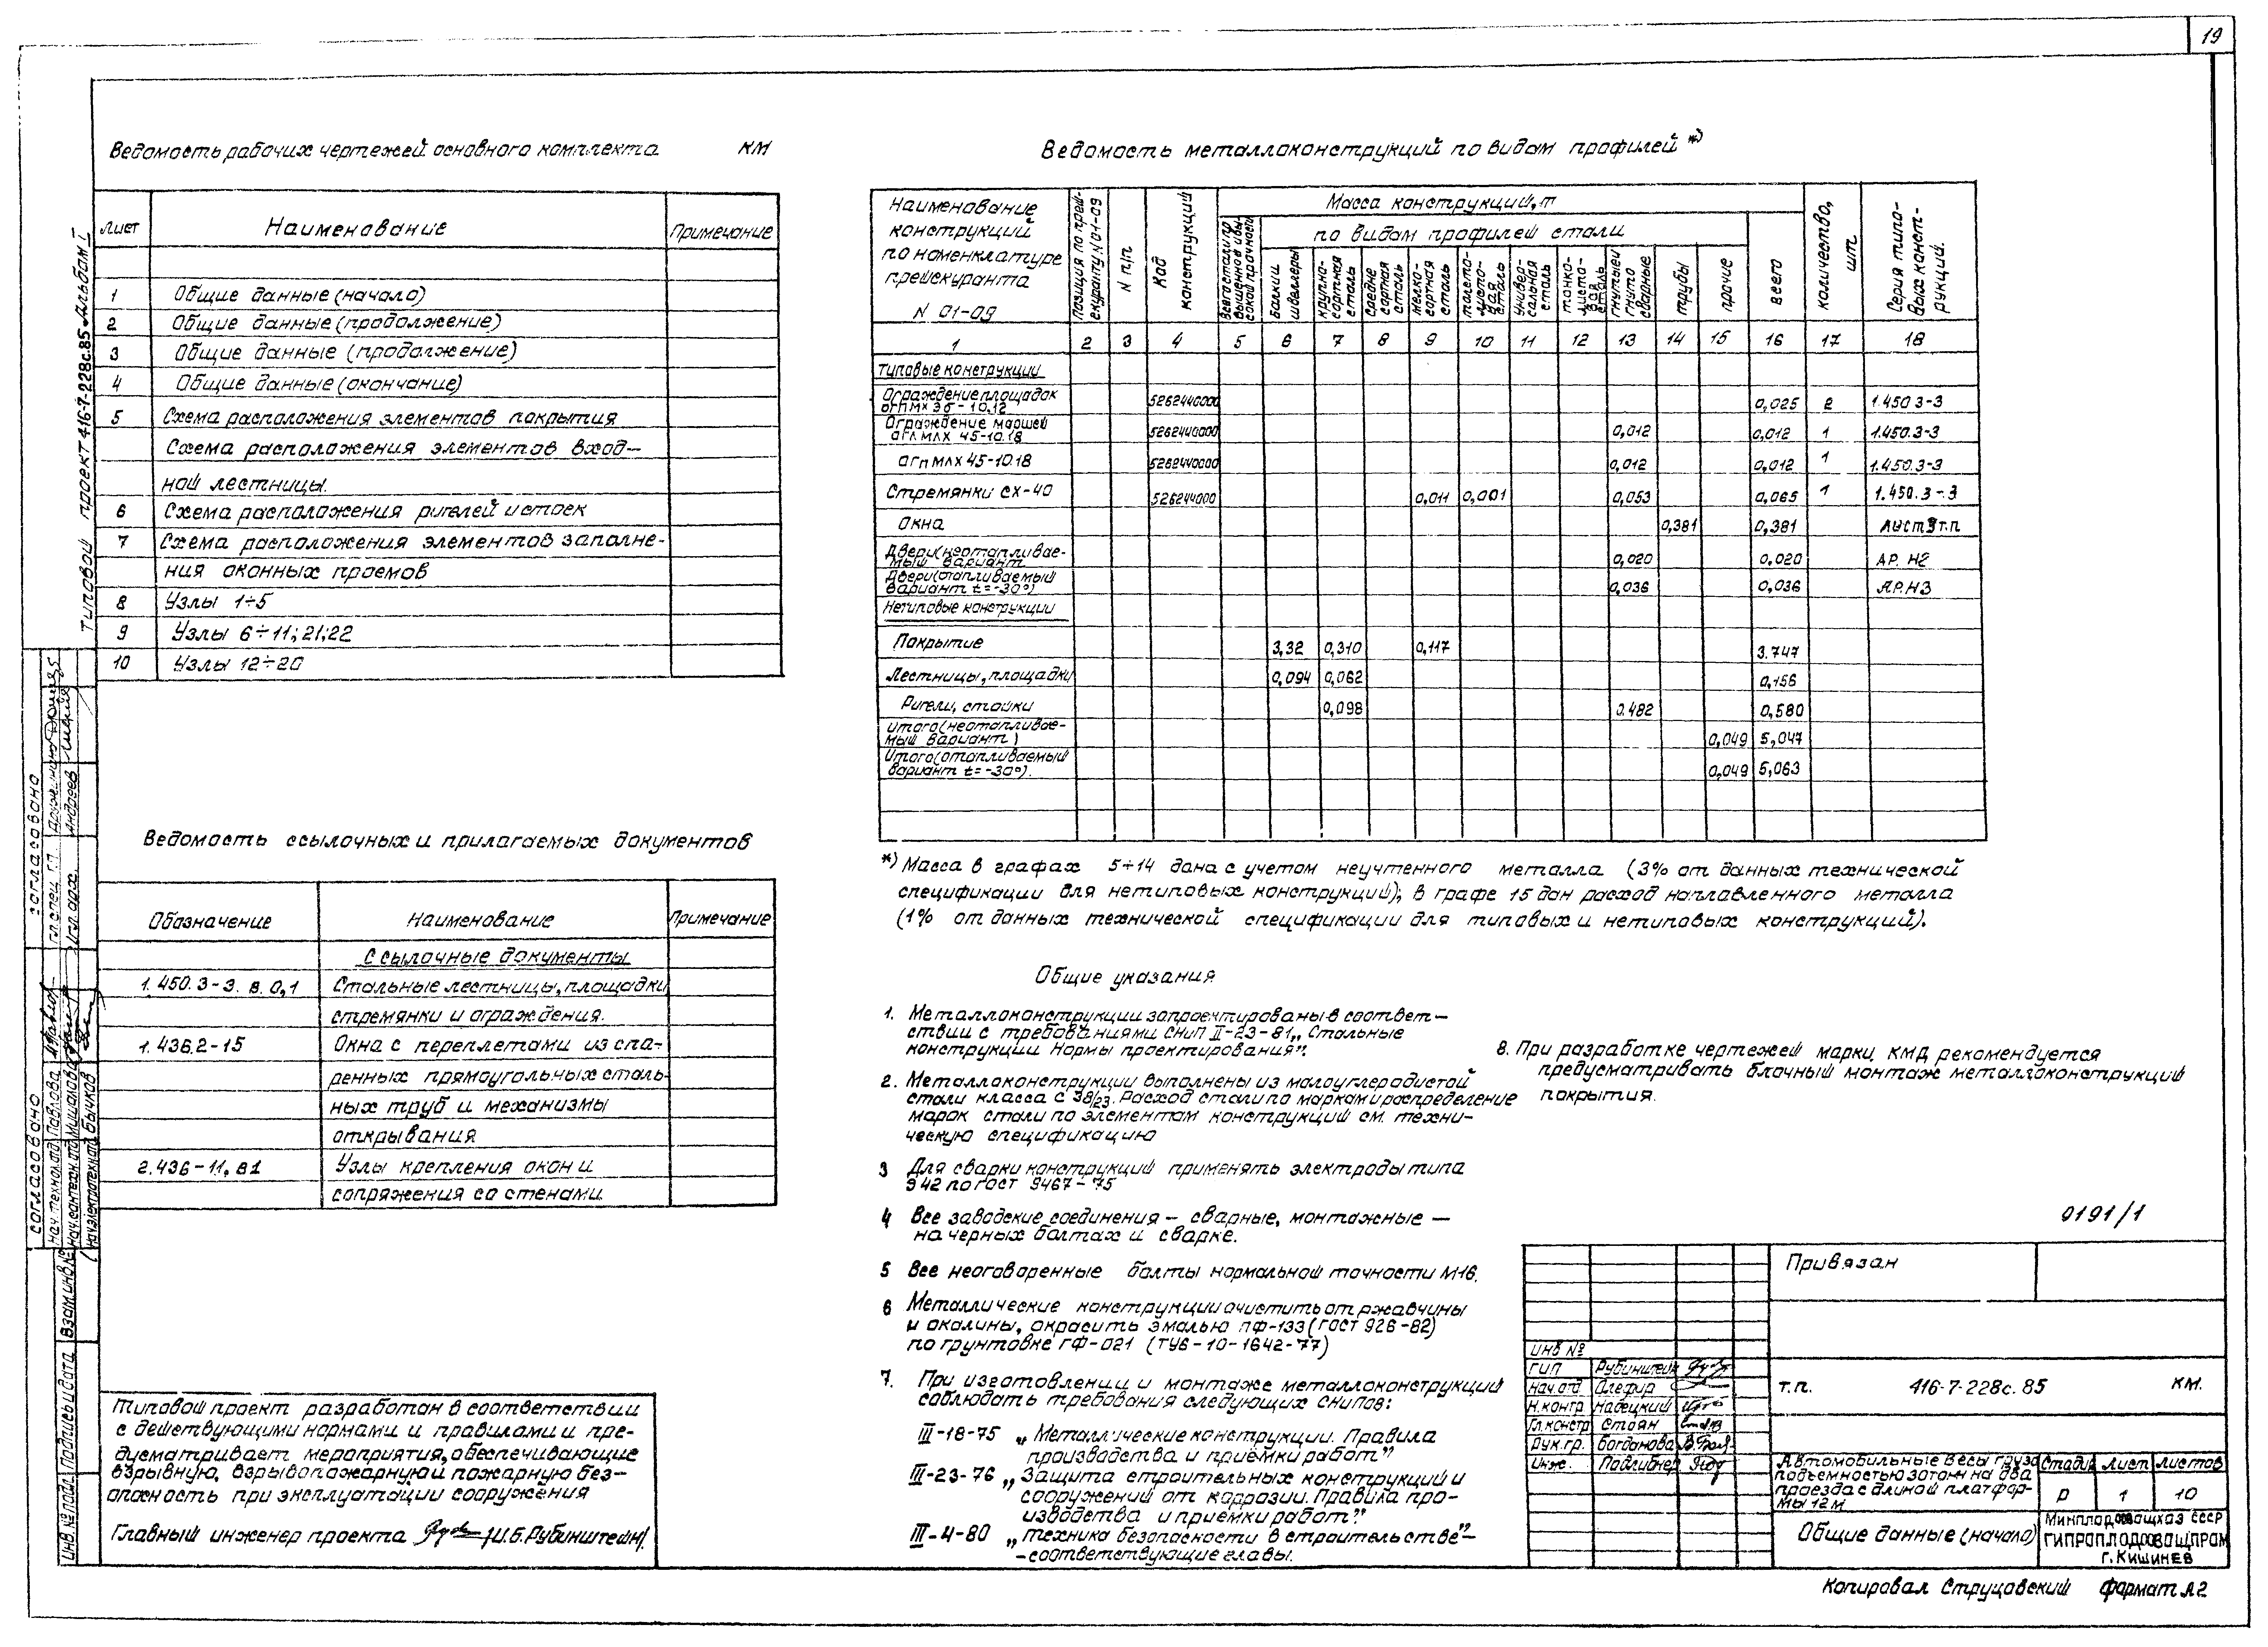 19
Ведомость рабочих чертежей основного комплекта КМ
Лист Наименование Примечание
1 Общие данные (начало)
2 Общие данные (продолжение)
3 Общие данные (продолжение)
4 Общие данные (окончание)
5 Схема расположения элементов покрытия
Схема расположения элементов вход-
ной лестницы.
6 Схема расположения ригелей и стоек
7 Схема расположения элементов заполне-
ния оконных проемов
8 Узлы 1÷5
9 Узлы 6÷11; 21; 22
10 Узлы 12÷20
Ведомость ссылочных и прилагаемых документов
Обозначение Наименование Примечание
Ссылочные документы
1.450.3-3. в. 0,1 Стальные лестницы, площадки
стремянки и ограждения.
1.436.2-15 Окна с переплетами из спа-
ренных прямоугольных сталь-
ных труб и механизмы
открывания
2.436-11, в1 Узлы крепления окон и
сопряжения со стенами.
Типовой проект разработан в соответствии
с действующими нормами и правилами и пре-
дусматривает мероприятия, обеспечивающие
взрывную, взрывопожарную и пожарную без-
опасность при эксплуатации сооружения
Главный инженер проекта /И.Б.Рубинштейн/
Типовой проект 416-7-228с.85 Альбом I
согласовано
гл. спец. г.п.
гл. арх. Андреев
согласовано
нач. технол. отд. Павлова
нач. сантехн. отд. Мишалова
нач. электротехн. отд. Бычков
Взам. инв. №
Подпись и дата
Инв. № подл.
Ведомость металлоконструкций по видам профилей *)
Наименование
конструкций
по номенклатуре
прейскуранта
N 01-09
Позиция по прей-
скуранту N 01-09
N п/п
Код
конструкций
Масса конструкций, т
Всего стали по-
вышенной и вы-
сокой прочности
по видам профилей стали
Балки
швеллеры
крупно-
сортная
сталь
средне
сортная
сталь
мелко-
сортная
сталь
толсто-
листо-
вая
сталь
универ-
сальная
сталь
тонко-
листо-
вая
сталь
гнутые и
гнуто
сварные
трубы
прочие
всего
количество,
шт
Серия типо-
вых конст-
рукций.
1 2 3 4 5 6 7 8 9 10 11 12 13 14 15 16 17 18
Типовые конструкции
Ограждение площадок
огпмх эб-10.12 5262440000 0,025 2 1.450 3-3
Ограждение маршей
огл млх 45-10.18 5262440000 0,012 0,012 1 1.450.3-3
огп млх 45-10.18 5262440000 0,012 0,012 1 1.450.3-3
Стремянки сх-40 526244000 0,011 0,001 0,053 0,065 1 1.450.3-3
Окна 0,381 0,381 лист 9 т.п
Двери (неотапливае-
мый вариант 0,020 0,020 АР. Н2
Двери (отапливаемый
вариант t=-30°) 0,036 0,036 АР. Н3
Нетиповые конструкции
Покрытие 3,32 0,310 0,117 3.747
Лестницы, площадки 0,094 0,062 0,156
Ригели, стойки 0,098 0.482 0,580
Итого (неотапливае-
мый вариант) 0,049 5,047
Итого (отапливаемый
вариант t=-30°). 0,049 5,063
*) Масса в графах 5÷14 дана с учетом неучтенного металла (3% от данных технической
спецификации для нетиповых конструкций); в графе 15 дан расход наплавленного металла
(1% от данных технической спецификации для типовых и нетиповых конструкций).
Общие указания
1. Металлоконструкции запроектированы в соответ-
ствии с требованиями СНиП II-23-81 „Стальные
конструкции Нормы проектирования”.
2. Металлоконструкции выполнены из малоуглеродистой
стали класса с 38/23. Расход стали по маркам и распределение
марок стали по элементам конструкций см. техни-
ческую спецификацию
3 Для сварки конструкций применять электроды типа
Э42 по ГОСТ 9467-75
4 Все заводские соединения - сварные, монтажные -
на черных болтах и сварке.
5 Все неоговоренные болты нормальной точности М16.
6 Металлические конструкции очистить от ржавчины
и окалины, окрасить эмалью ПФ-133 (ГОСТ 926-82)
по грунтовке ГФ-021 (ТУ6-10-1642-77)
7. При изготовлении и монтаже металлоконструкций
соблюдать требования следующих СНиПов:
III-18-75 „Металлические конструкции. Правила
производства и приёмки работ”
III-23-76 „Защита строительных конструкций и
сооружений от коррозии. Правила про-
изводства и приёмки работ”
III-4-80 „Техника безопасности в строительстве”-
-соответствующие главы.
8. При разработке чертежей марки КМД рекомендуется
предусматривать блочный монтаж металлоконструкций
покрытия.
0191/1
Привязан
Инв №
ГИП Рубинштейн
Нач. отд Олефир
Н. контр Навецкий
Гл. констр Стоян
Рук. гр. Богданова
Инж. Подлибнер
т.п. 416-7-228с. 85 КМ.
Автомобильные весы грузо
подъемностью 30 тонн на два
проезда с длиной платфор-
мы 12 м
Стадия Лист Листов
Р 1 10
Общие данные (начало)
Минплодовощхоз СССР
ГИПРОПЛОДОВОЩПРОМ
г. Кишинев
Копировал Струцовский Формат А2